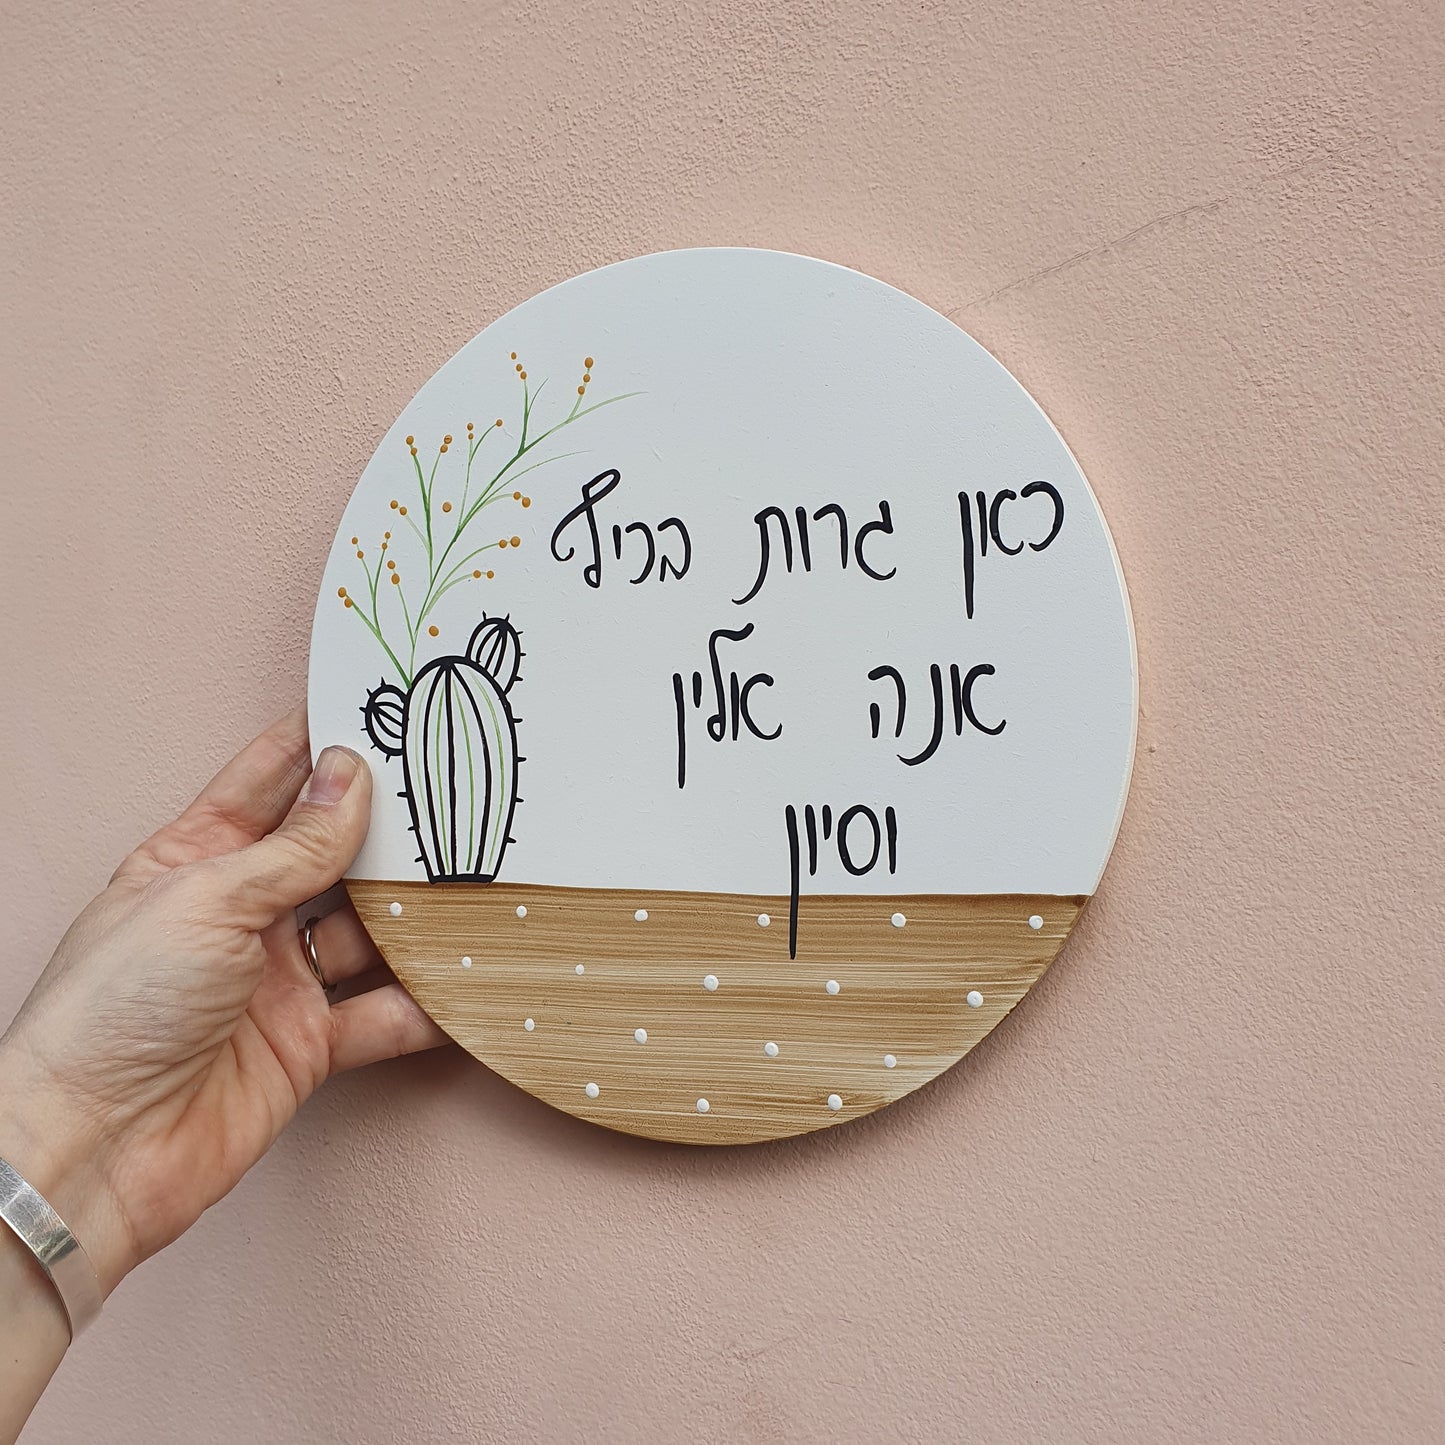 כאון גרות בכיף
אנה אלין
וסיון